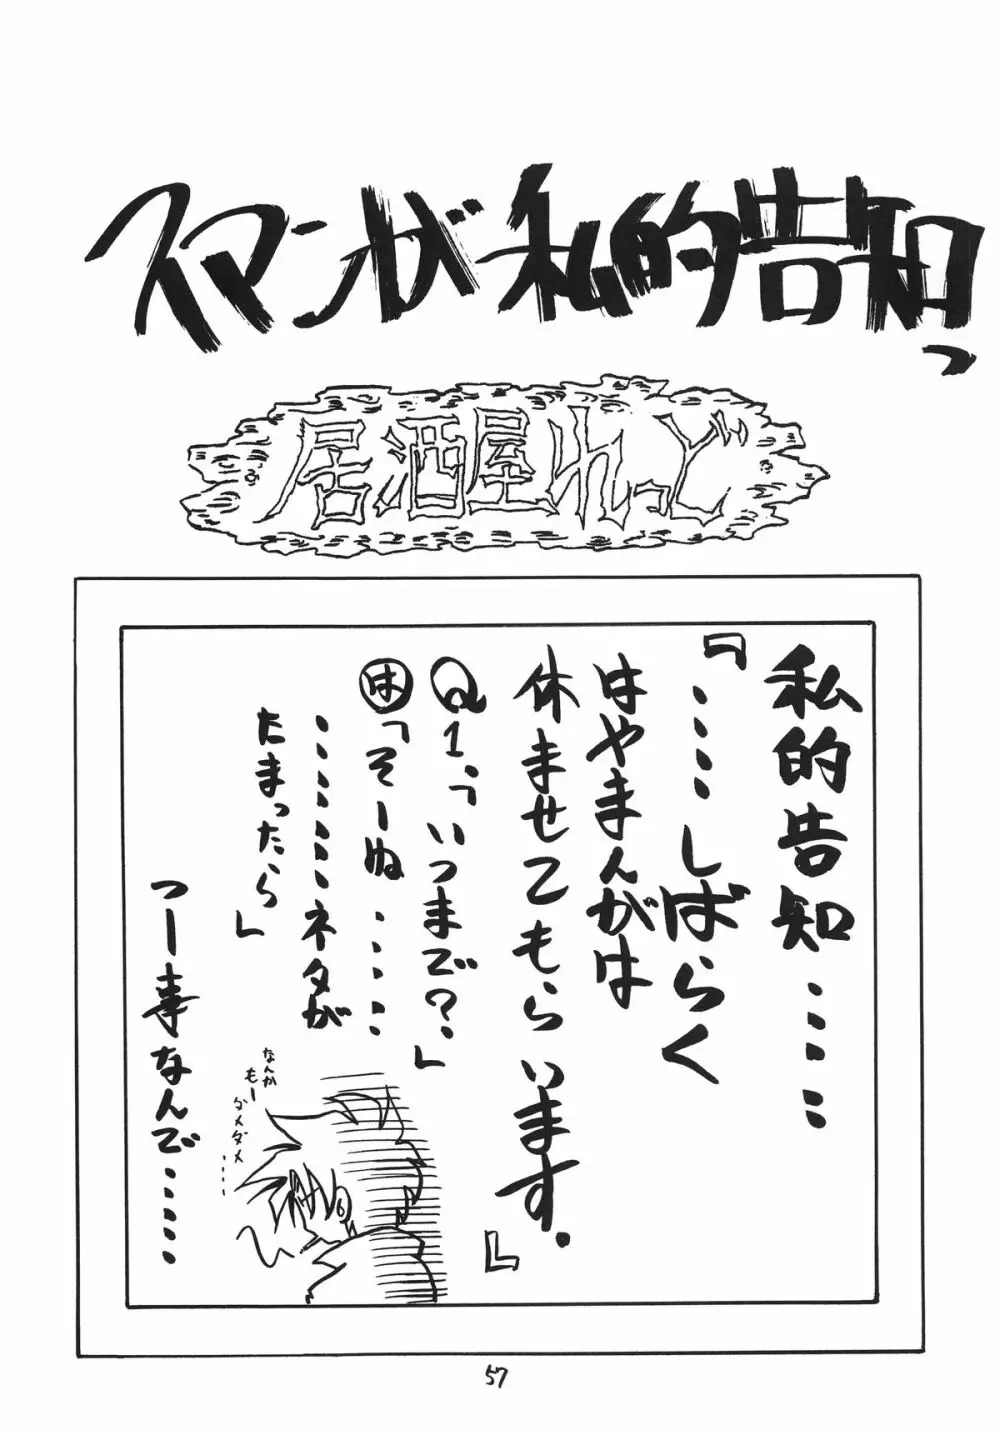 スマンが私的告知っ
居酒屋れっど
私的告知‥‥
『‥‥しばらく
はやまんがは
休ませてもらいます。』
Q1.「いつまで？」
は「そーぬ‥‥
‥‥‥ネタが
たまったら」
つー事なんで‥‥‥
なんか
もー
ダメダメ
‥‥
57